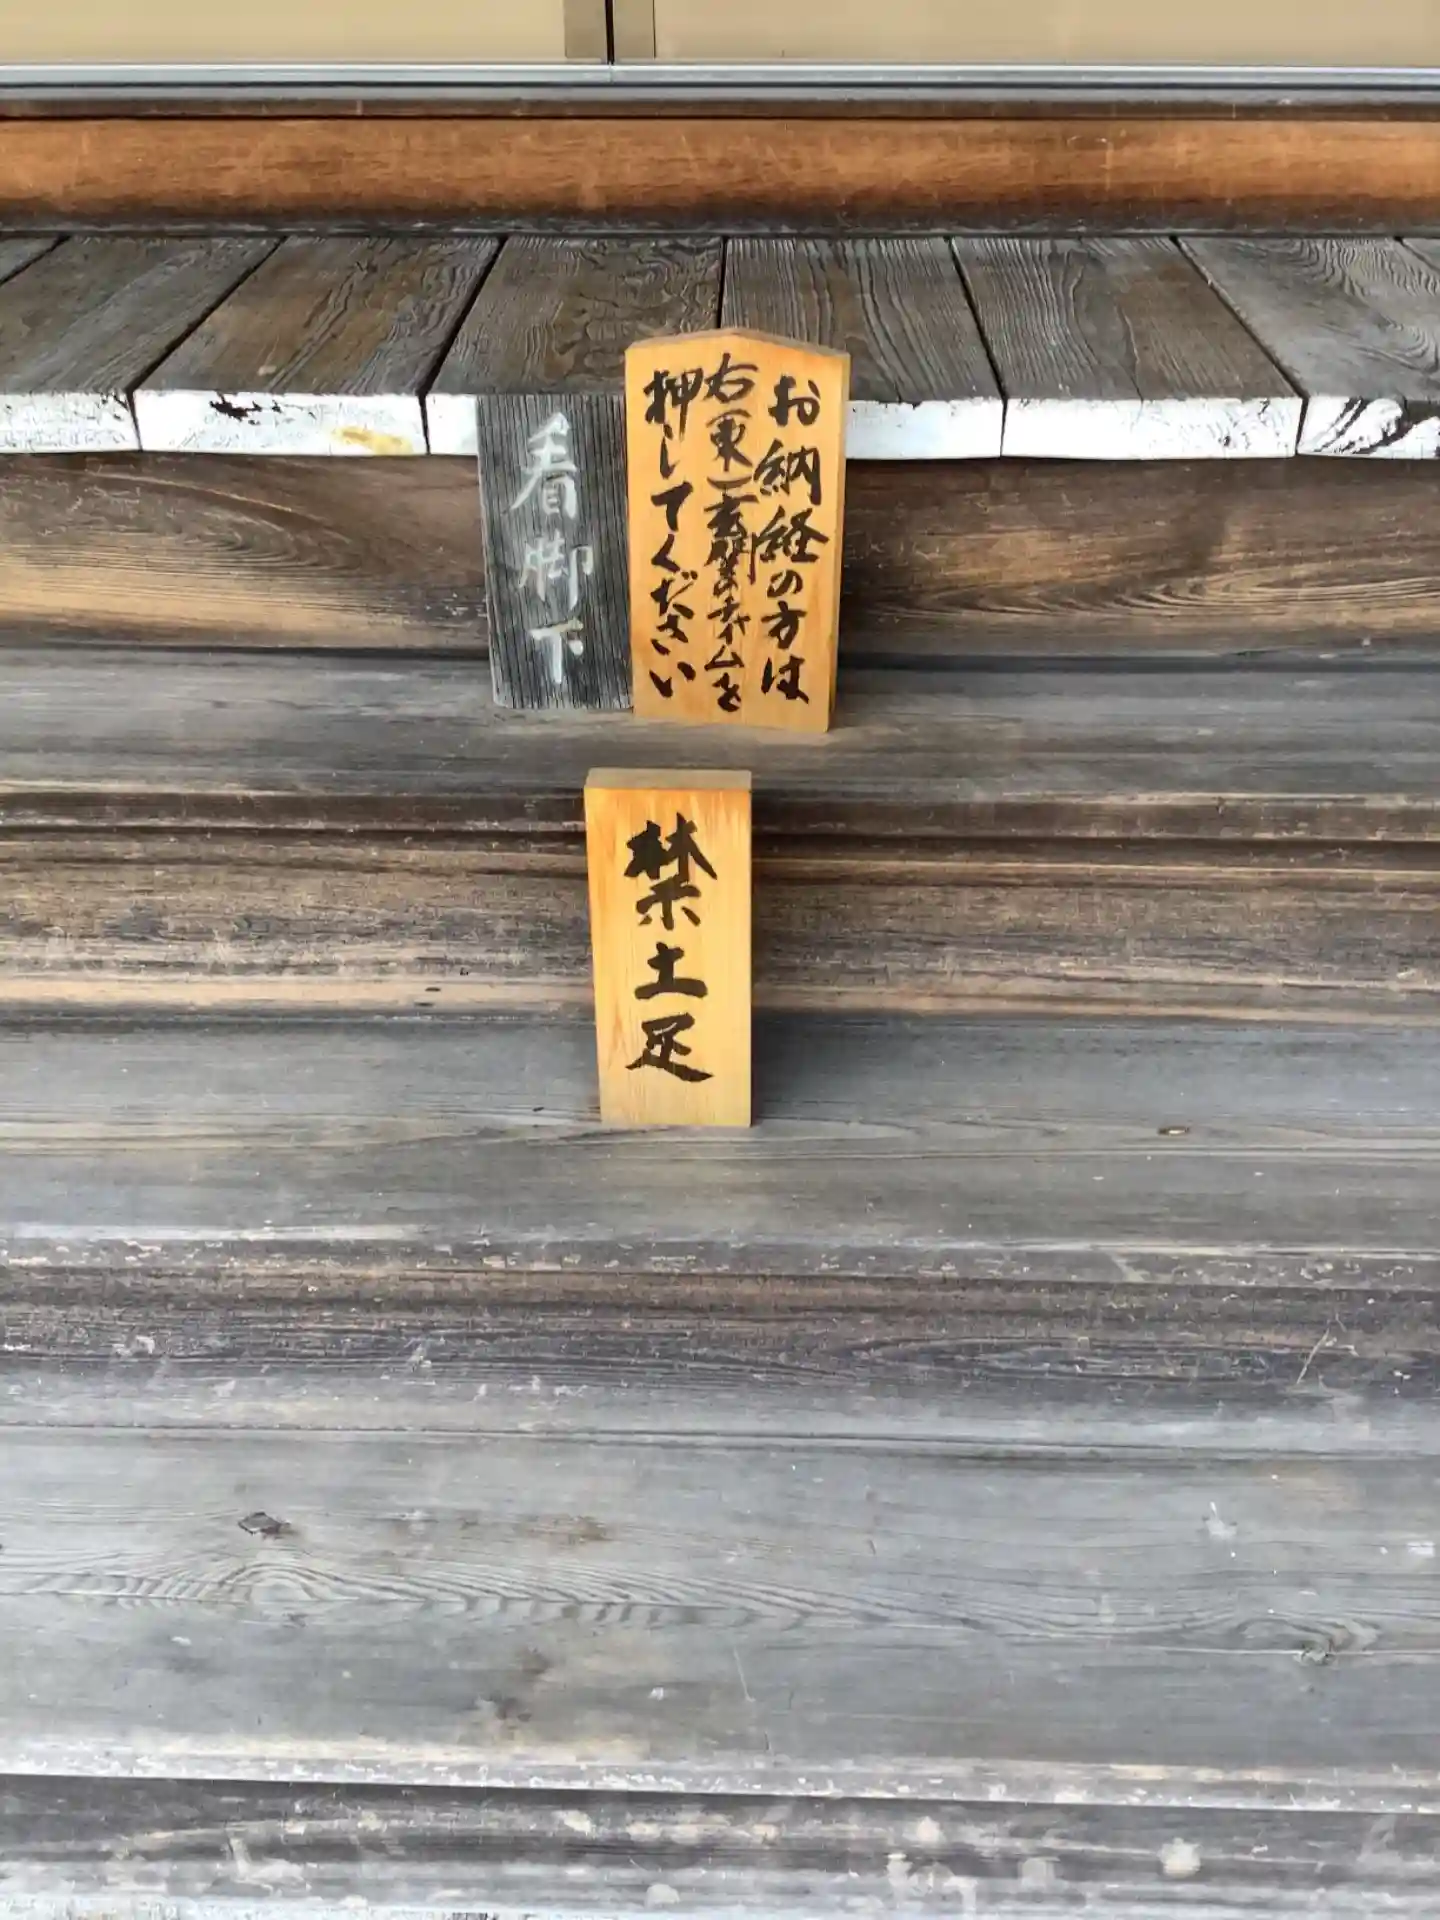 お納経の方は
右(東)玄関のチャイムを
押してください
看脚下
禁土足